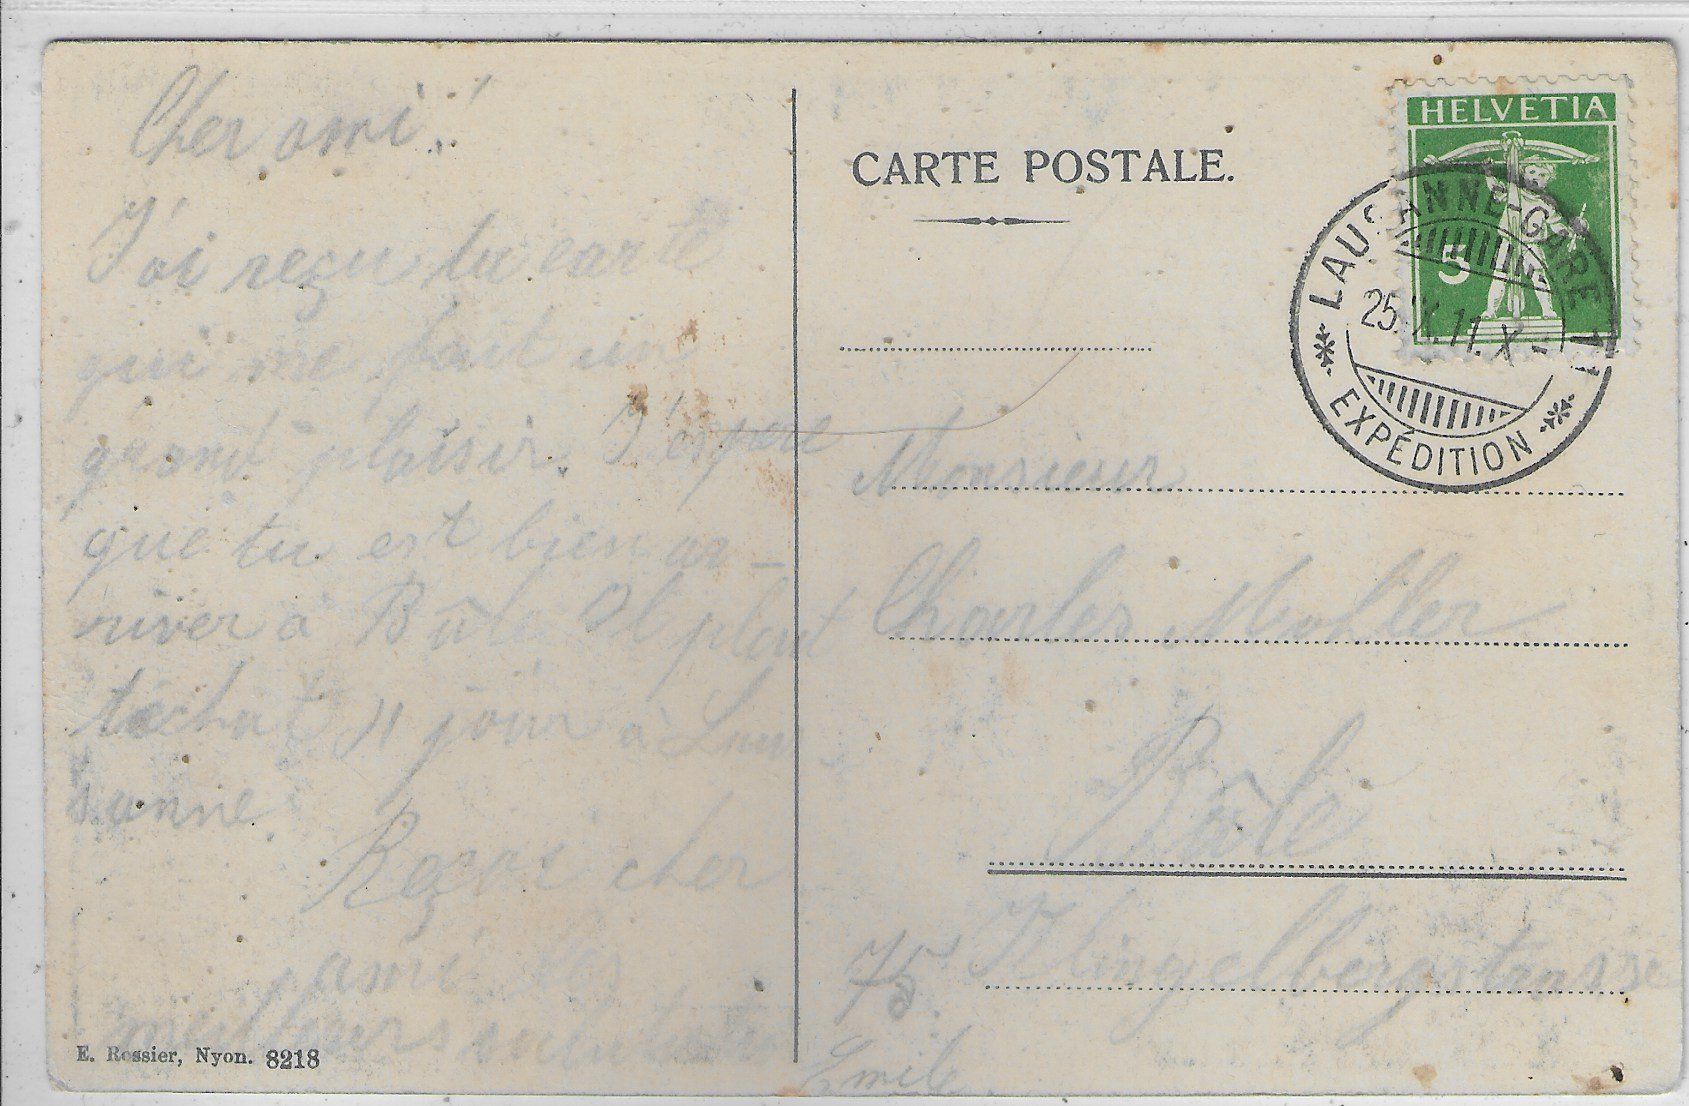 Cher ami!
J'ai reçu ta carte
qui me fait un
grand plaisir. J'espere
que tu est bien ar-
river à Bâle Il plent
à Lau
sanne.
Reçoi cher
ami les
meilleurs salutations
Emile
CARTE POSTALE.
HELVETIA
5
LAUSANNE-GARE
25. X. 11. X
EXPÉDITION
Monsieur
Charles Mohler
Bâle
75 Klingelbergstrasse
E. Rossier, Nyon. 8218